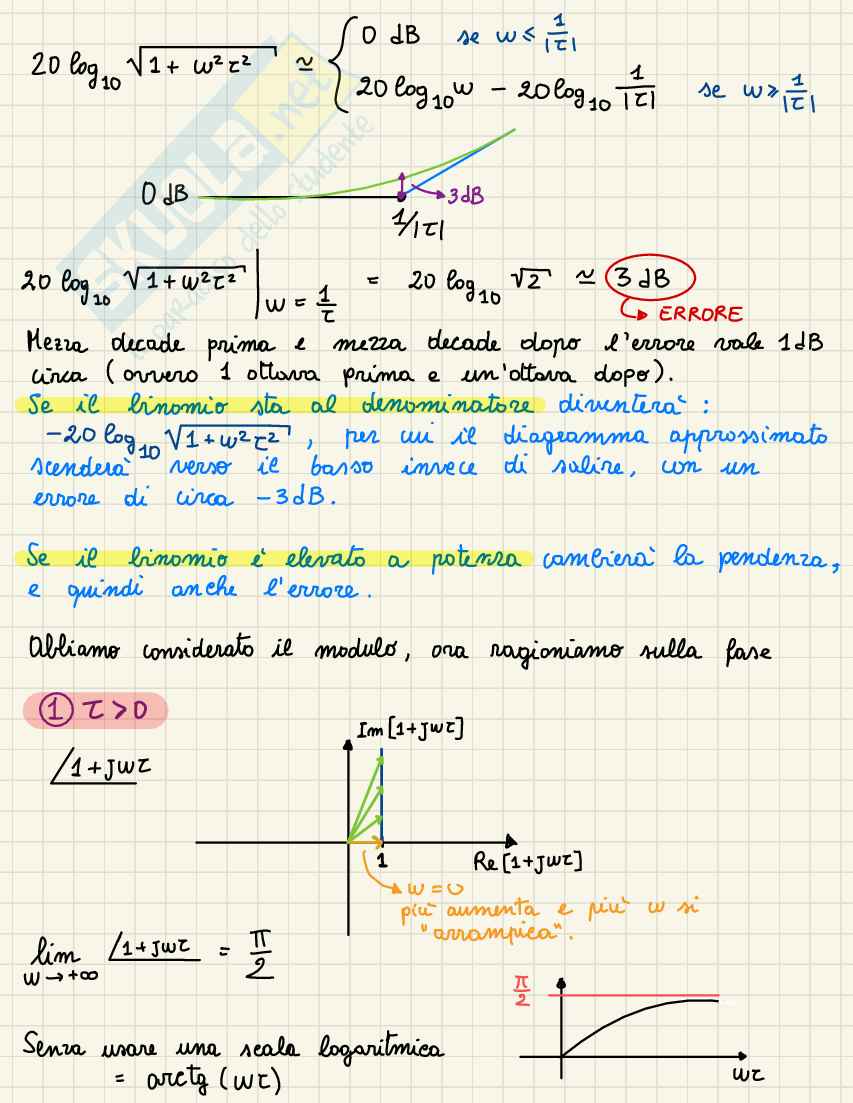 20 log₁₀ √(1 + w²τ²) ≃ { 0 dB se w ≤ 1/|τ|
20 log₁₀ w − 20 log₁₀ 1/|τ| se w ≥ 1/|τ|
0 dB
3 dB
1/|τ|
20 log₁₀ √(1 + w²τ²) |w = 1/τ = 20 log₁₀ √2 ≃ 3 dB
ERRORE
Mezza decade prima e mezza decade dopo l'errore vale 1 dB
circa (ovvero 1 ottava prima e un'ottava dopo).
Se il binomio sta al denominatore diventerà :
−20 log₁₀ √(1 + w²τ²) , per cui il diagramma approssimato
scenderà verso il basso invece di salire, con un
errore di circa −3 dB.
Se il binomio è elevato a potenza cambierà la pendenza,
e quindi anche l'errore.
Abbiamo considerato il modulo, ora ragioniamo sulla fase
① τ > 0
Im [1+jwτ]
∠1+jwτ
1
Re [1+jwτ]
w = 0
più aumenta e più w si
"arrampica".
lim w → +∞ ∠1+jwτ = π/2
π/2
Senza usare una scala logaritmica
= arctg (wτ)
wτ
SKUOLA.net
il paradiso dello studente